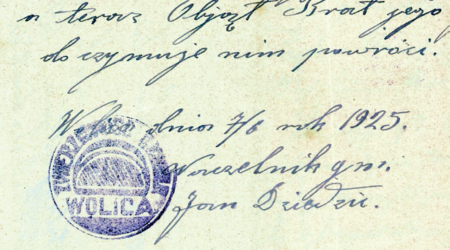 a teraz Objął Brat jego
do czymuje nim powróci.
Wolica dnia 7/6 rok 1925.
Naczelnik gm.
Jan Dziedzic.
WOLICA